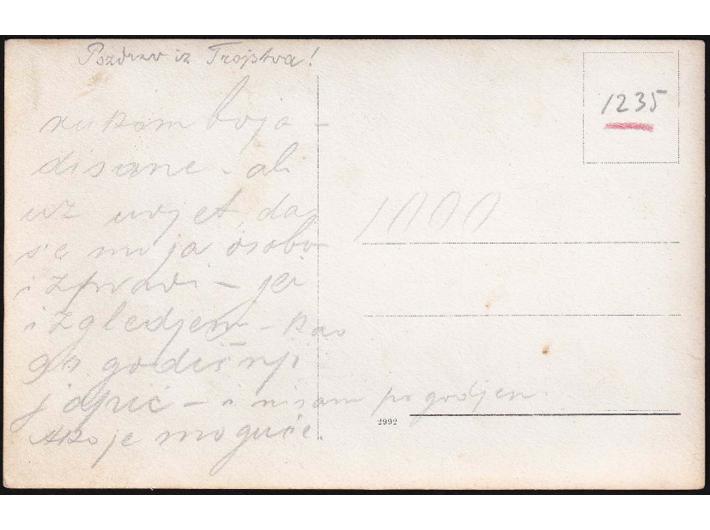 Pozdrav iz Trojstva!
1235
disane - ali
uz uvjet da
se moja osoba
izpravi - jer
izgledjem - kao
godišnji
japić - i nisam pogodjen.
Ako je moguće.
1000
2992